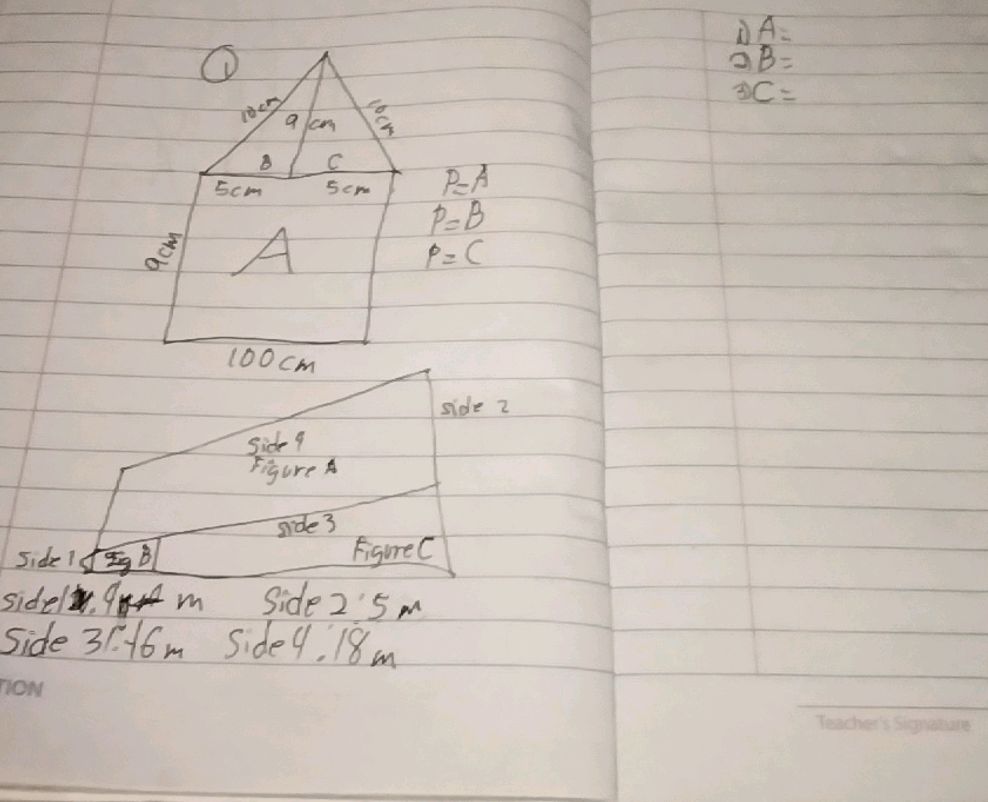 ①
10cm
9 cm
10cm
B
C
5cm
5cm
9cm
A
100cm
P=A
P=B
P=C
1) A=
2) B=
3) C=
side 2
Side 4
Figure A
side 3
Side 1
Fig B
Figure C
side 1
m
Side 2:5m
Side 3:
6m
Side 4:18m
TION
Teacher's Signature